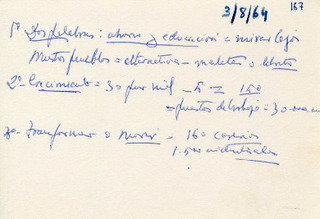 3/8/64
167
1º Dos palabras: ahorro y educación = mirar lejos
Nuestros pueblos = alternativa - maletas o libros
2º Crecimiento = 30 por mil - 5 = 150
= puestos de trabajo = 30.000
3º Transformar o morir - 16º
1.500 industriales